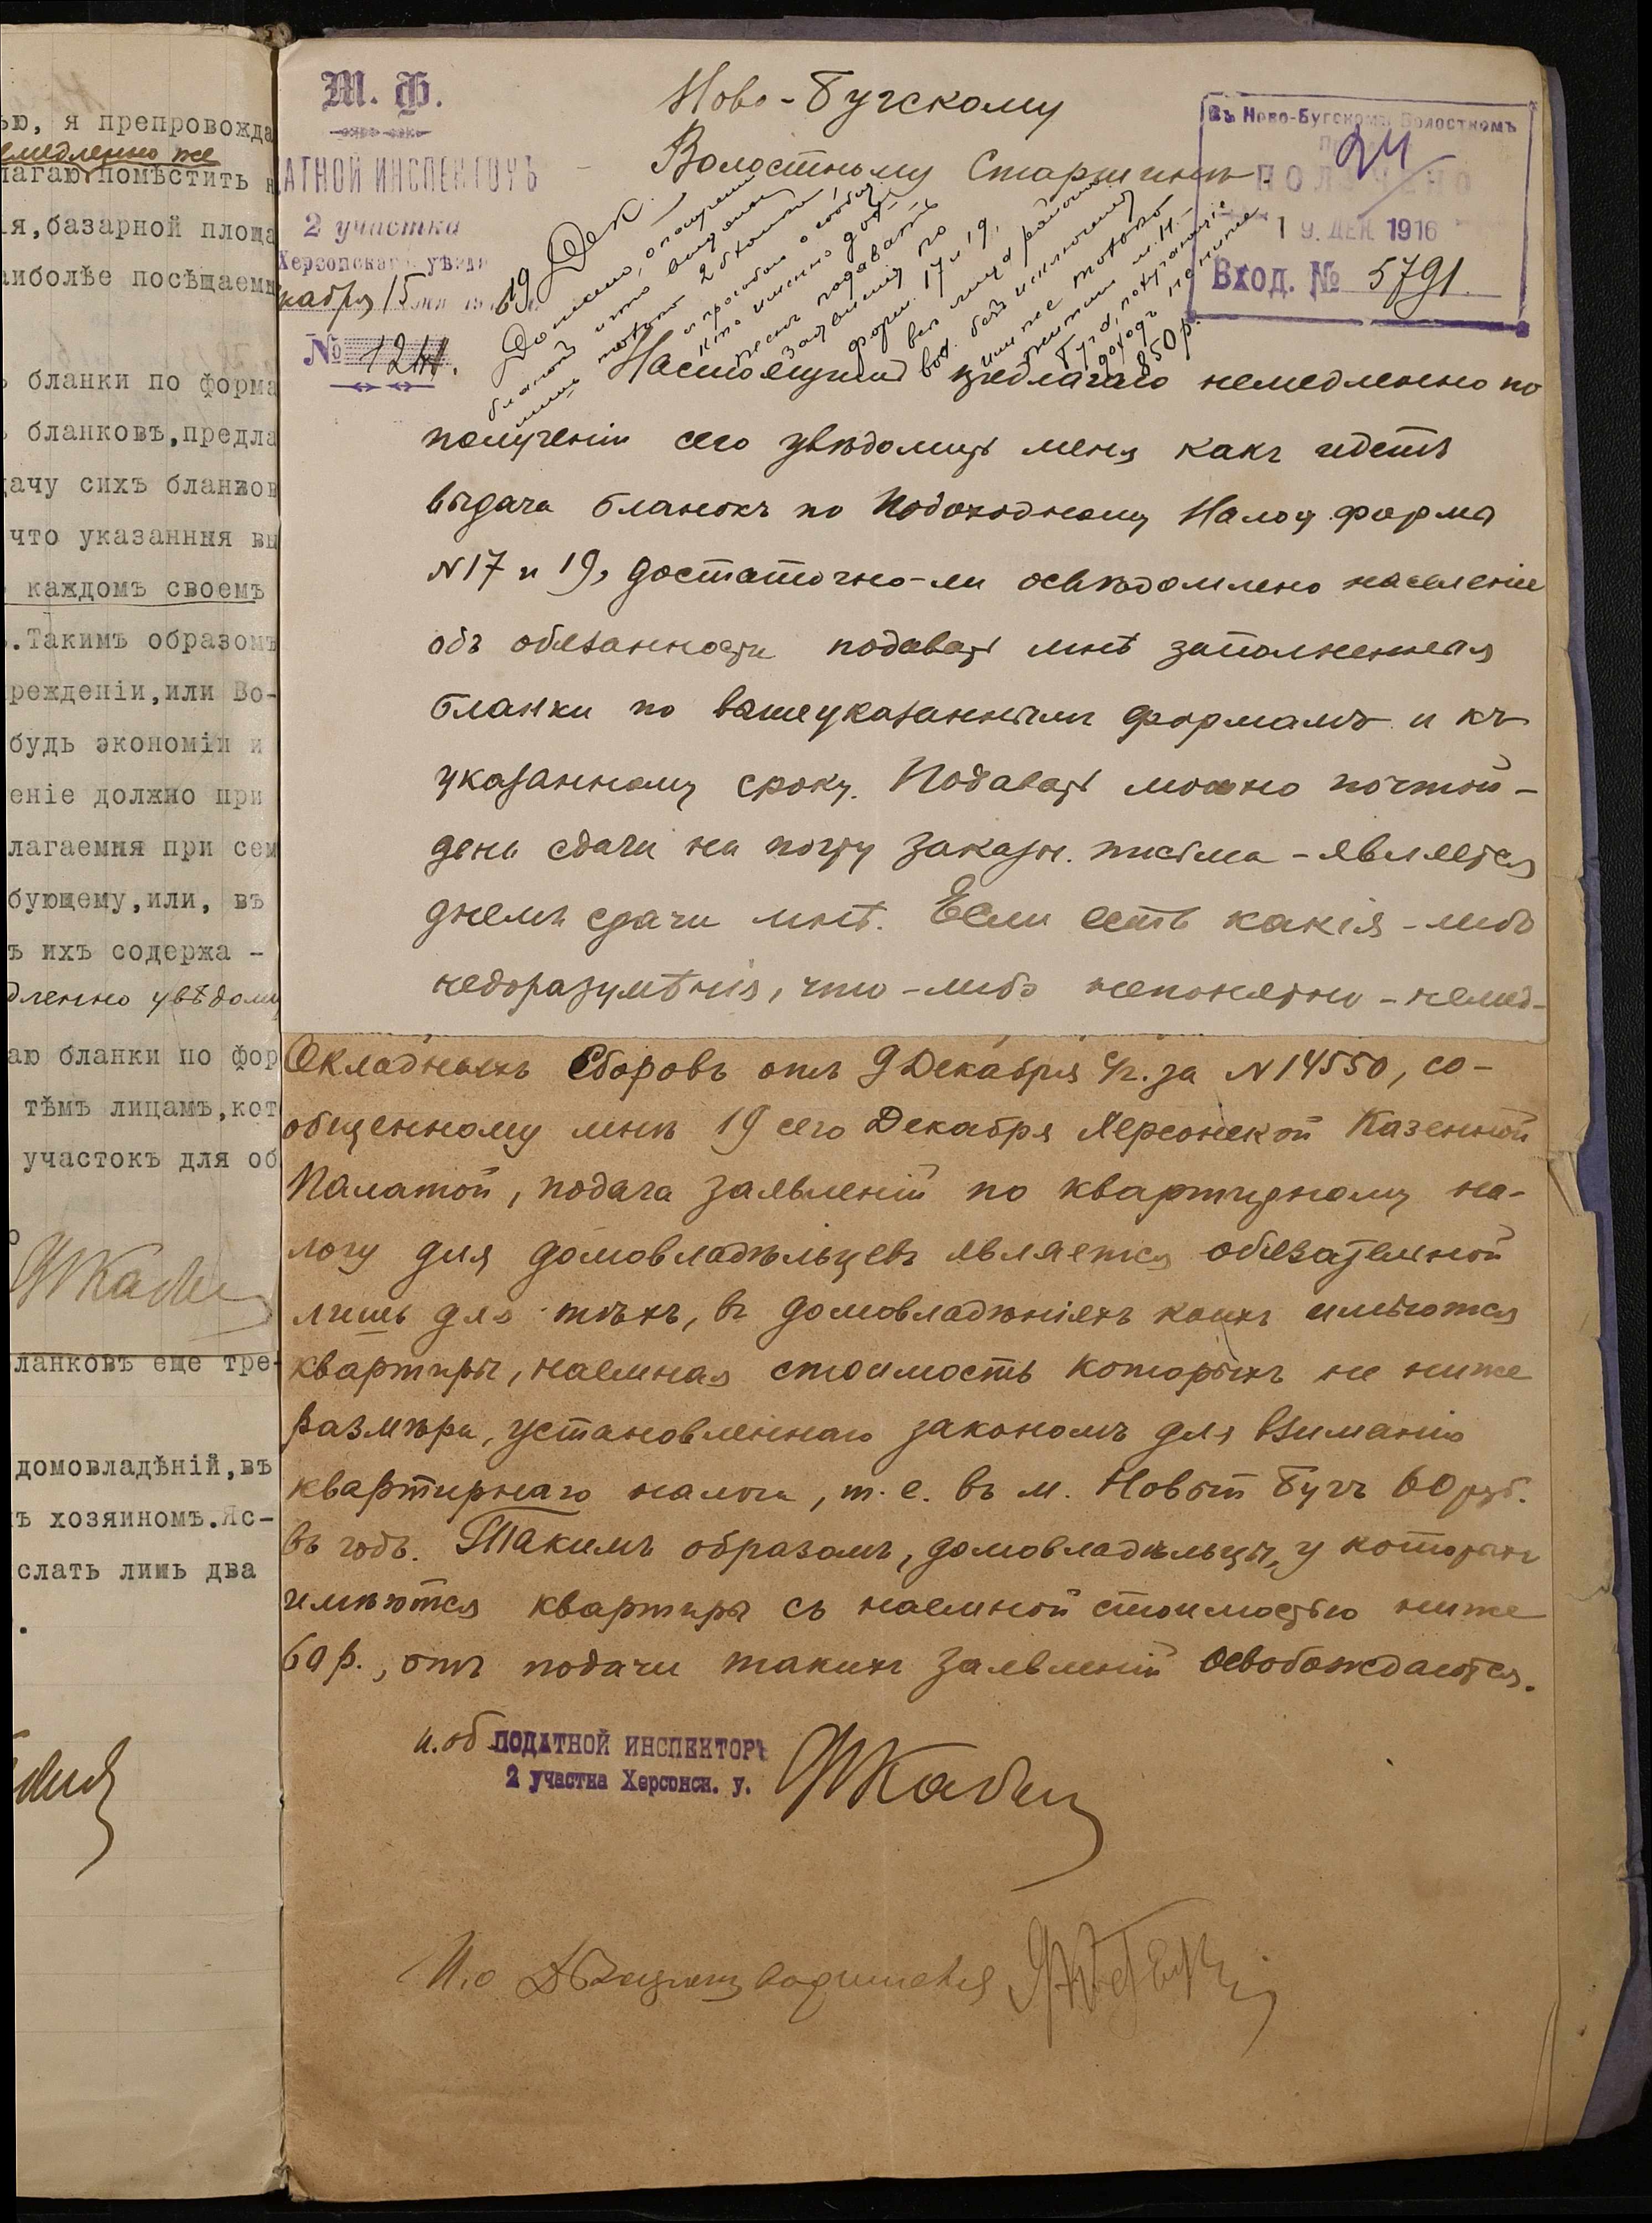 ью, я препровожда
емедленно же
лагаю помѣстить н
ія, базарной площа
аиболѣе посѣщаемы
бланки по форма
бланковъ, предла
дачу сихъ бланков
что указанныя вы
каждомъ своемъ
.Такимъ образомъ
реждении, или Во-
будь экономіи и
еніе должно при
лагаемыя при сем
бующему, или, въ
ъ ихъ содержа -
дленно увѣдоми
аю бланки по фор
тѣмъ лицамъ, кот
участокъ для об
ланковъ еще тре-
домовладѣній, въ
ъ хозяиномъ. Яс-
слать лишь два
М. Ф.
АТНОЙ ИНСПЕКТОРЪ
2 участка
Херсонскаго уѣзда
кабря 15
№ 1241.
Ново-Бугскому
Волостному Старшинѣ.
Въ Ново-Бугскомъ Волостномъ
24
ПОЛУЧЕНО
19. ДЕК 1916
Вход. № 5791.
19 Дек.
Донесено, о полученіи
бланокъ и что выдача
2 бланки,
и просьбой сообщ
кто именно дол-
женъ подавать
заявленія по
форм. 17 и 19,
всѣ лица
вол. безъ исключенія
или же только
жители м. Н.-
Буга, получающіе
доходъ не ниже
850 р.
Настоящимъ предлагаю немедленно по
полученіи сего увѣдомить меня какъ идетъ
выдача бланокъ по Подоходному Налогу форма
N 17 и 19, достаточно-ли освѣдомлено населеніе
объ обязанности подавать мнѣ заполненныя
бланки по вышеуказаннымъ формамъ и къ
указанному сроку. Подавать можно почтой -
день сдачи на почту заказн. письма - является
днемъ сдачи мнѣ. Если есть какія-либо
недоразумѣнія, что-либо непонятно - немед-
Окладныхъ Сборовъ отъ 9 Декабря с/г. за N 14550, со-
общенному мнѣ 19 сего Декабря Херсонской Казенной
Палатой, подача заявленій по квартирному на-
логу для домовладѣльцевъ является обязательной
лишь для тѣхъ, въ домовладѣніяхъ коихъ имѣются
квартиры, наемная стоимость которыхъ не ниже
размѣра, установленнаго закономъ для взиманія
квартирнаго налога, т. е. въ м. Новый Бугъ 60 руб.
въ годъ. Такимъ образомъ, домовладѣльцы, у которыхъ
имѣются квартиры съ наемной стоимостью ниже
60 р., отъ подачи такихъ заявленій освобождаются.
и. об. ПОДАТНОЙ ИНСПЕКТОРЪ
2 участка Херсонск. у.
И. о